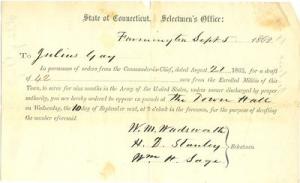 State of Connecticut, Selectmen's Office:
Farmington Sept 5 1862
To Julius Gay
In pursuance of orders from the Commander-in-Chief, dated August 21 1862, for a draft
of 42 men from the Enrolled Militia of this
Town, to serve for nine months in the Army of the United States, unless sooner discharged by proper
authority, you are hereby ordered to appear in parade at The Town Hall
on Wednesday, the 10 day of September next, at 9 o'clock in the forenoon, for the purpose of drafting
the number aforesaid.
W. M. Wadsworth
H. D. Stanley
Wm H. Sage
Selectmen